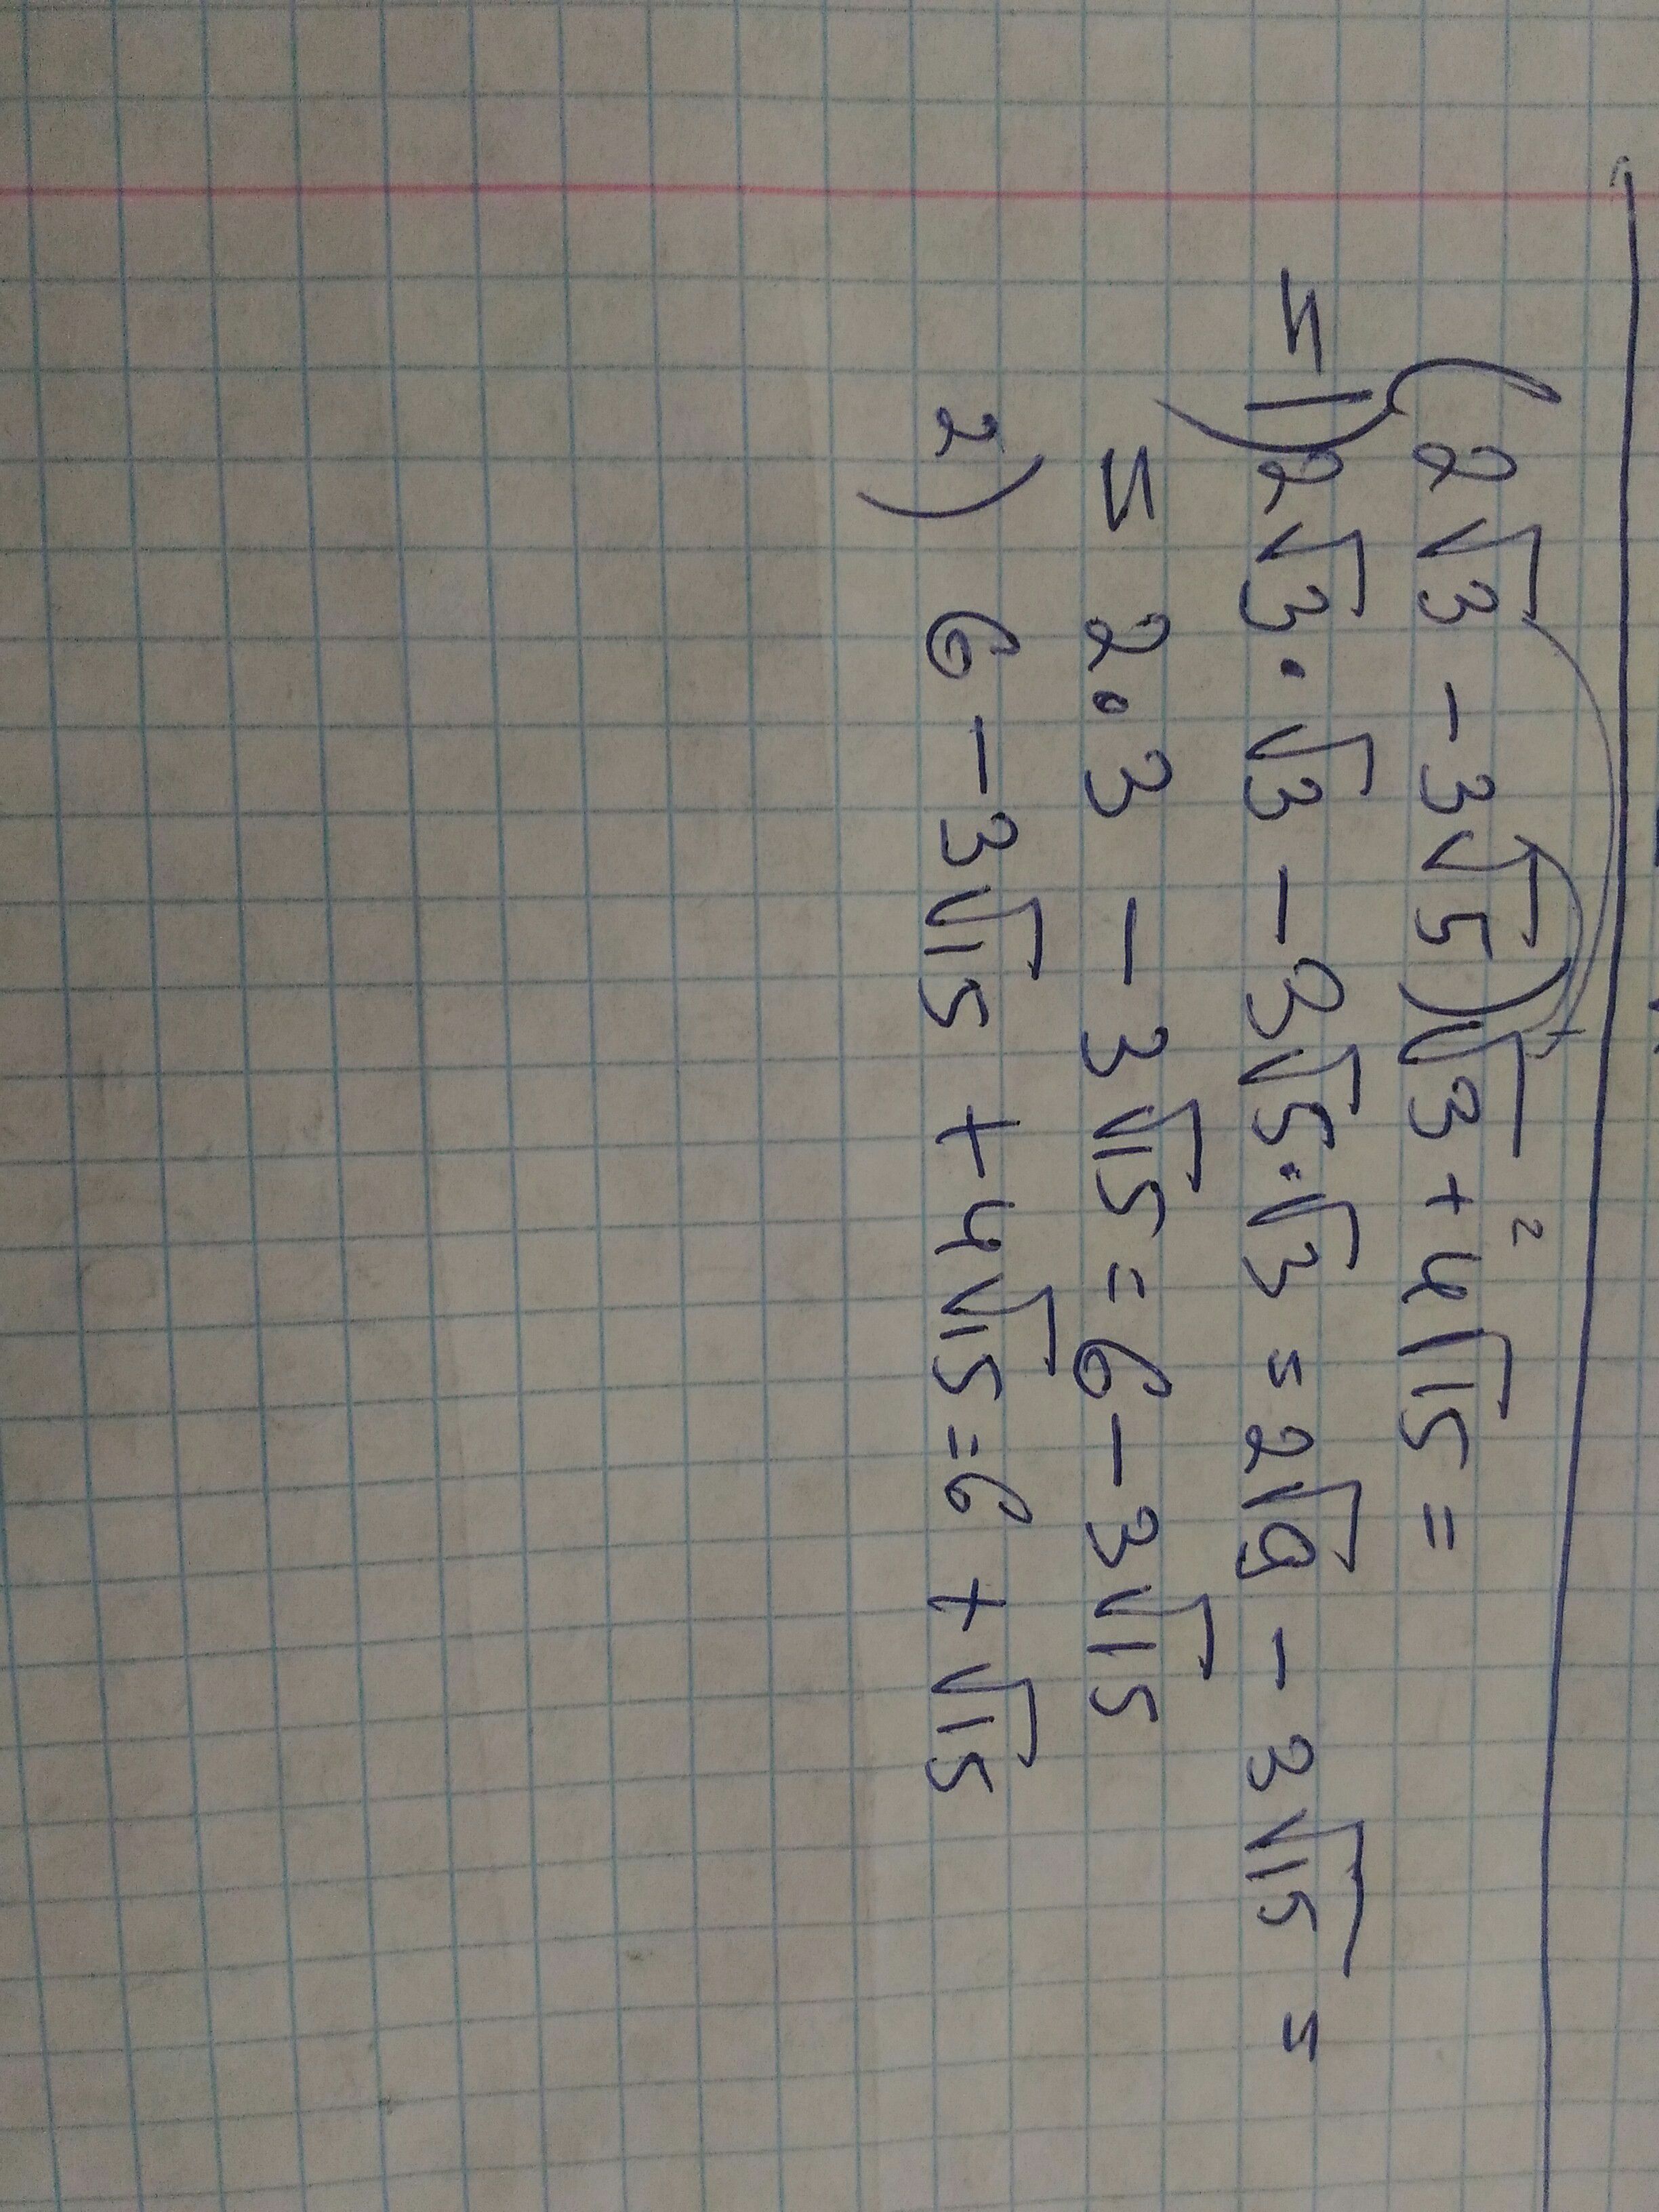 (2√3 - 3√5)√3 + 4√15 =
= 1) 2√3 · √3 - 3√5 · √3 = 2√9 - 3√15 =
= 2 · 3 - 3√15 = 6 - 3√15
2) 6 - 3√15 + 4√15 = 6 + √15